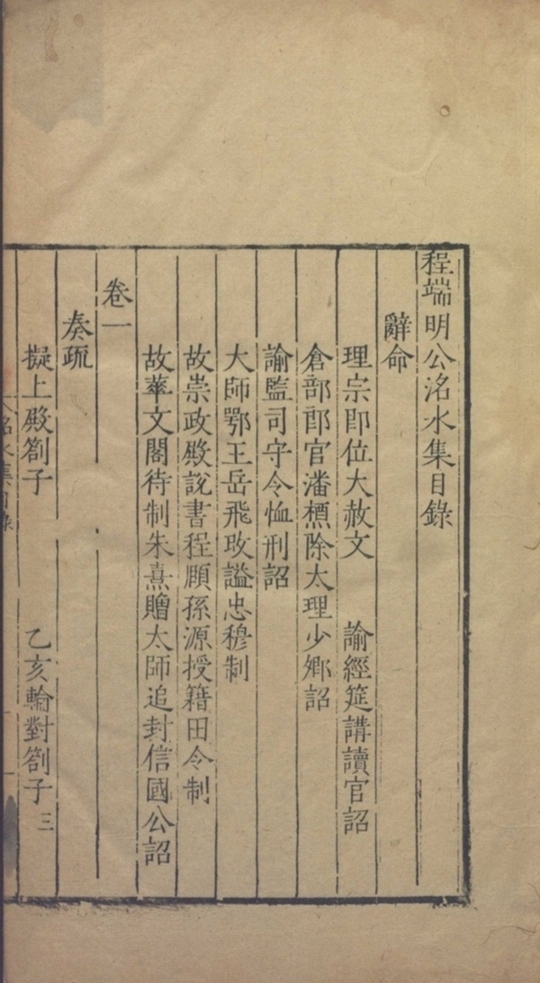 程端明公洺水集目錄
辭命
理宗即位大赦文 諭經筵講讀官詔
倉部郎官潘檟除太理少卿詔
諭監司守令恤刑詔
大師鄂王岳飛攺謚忠穆制
故崇政殿說書程頤孫源授籍田令制
故華文閣待制朱熹贈太師追封信國公詔
卷一
奏疏
擬上殿劄子 乙亥輪對劄子三
洺水集目錄